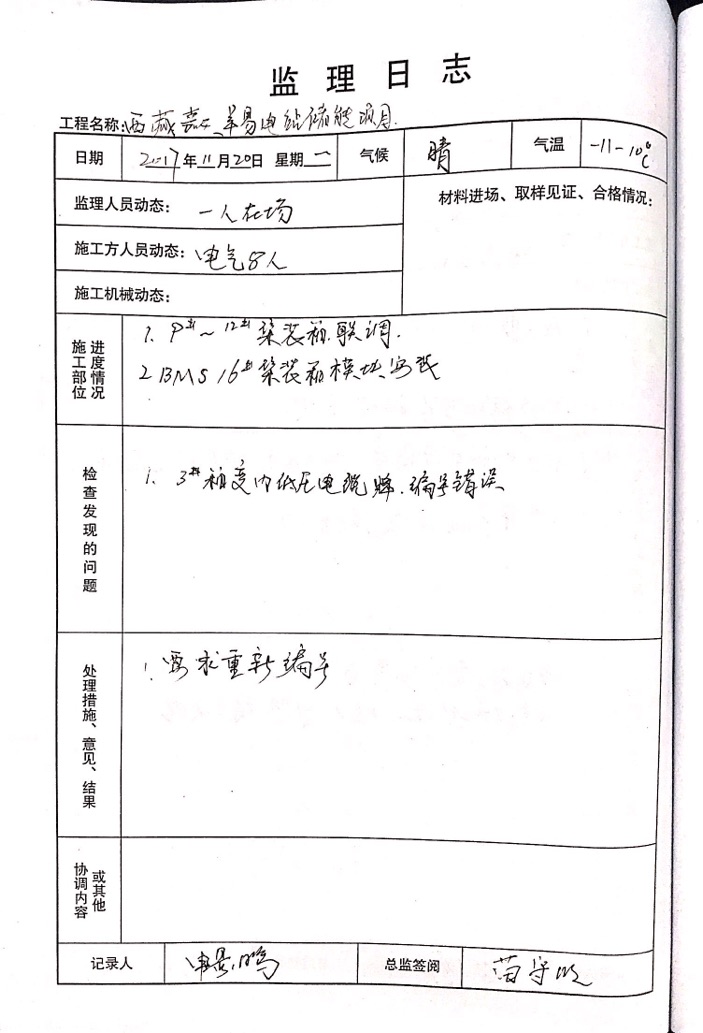 监理日志
工程名称:西藏 羊易电站储能项目
日期 2017年11月20日 星期一 气候 晴 气温 -11-10℃
监理人员动态: 一人在场
材料进场、取样见证、合格情况:
施工方人员动态: 电气8人
施工机械动态:
施工部位进度情况
1. 9#~12#集装箱联调.
2 BMS 16#集装箱模块安装
检查发现的问题
1. 3#箱变内低压电缆牌.编号错误
处理措施、意见、结果
1. 要求重新编号
协调内容或其他
记录人 总监签阅 苗守